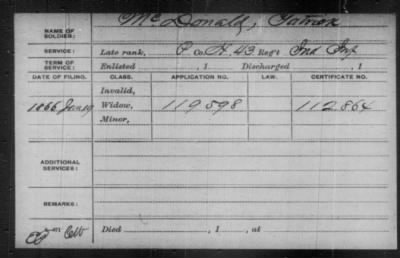 NAME OF SOLDIER: McDonald, Patrick
SERVICE: Late rank, P Co. H, 43 Reg't Ind Inf
TERM OF SERVICE: Enlisted , 1 Discharged , 1
DATE OF FILING. CLASS. APPLICATION NO. LAW. CERTIFICATE NO.
Invalid,
1866 Jan 19 Widow, 119598 112864
Minor,
ADDITIONAL SERVICES:
REMARKS:
Died , 1 , at